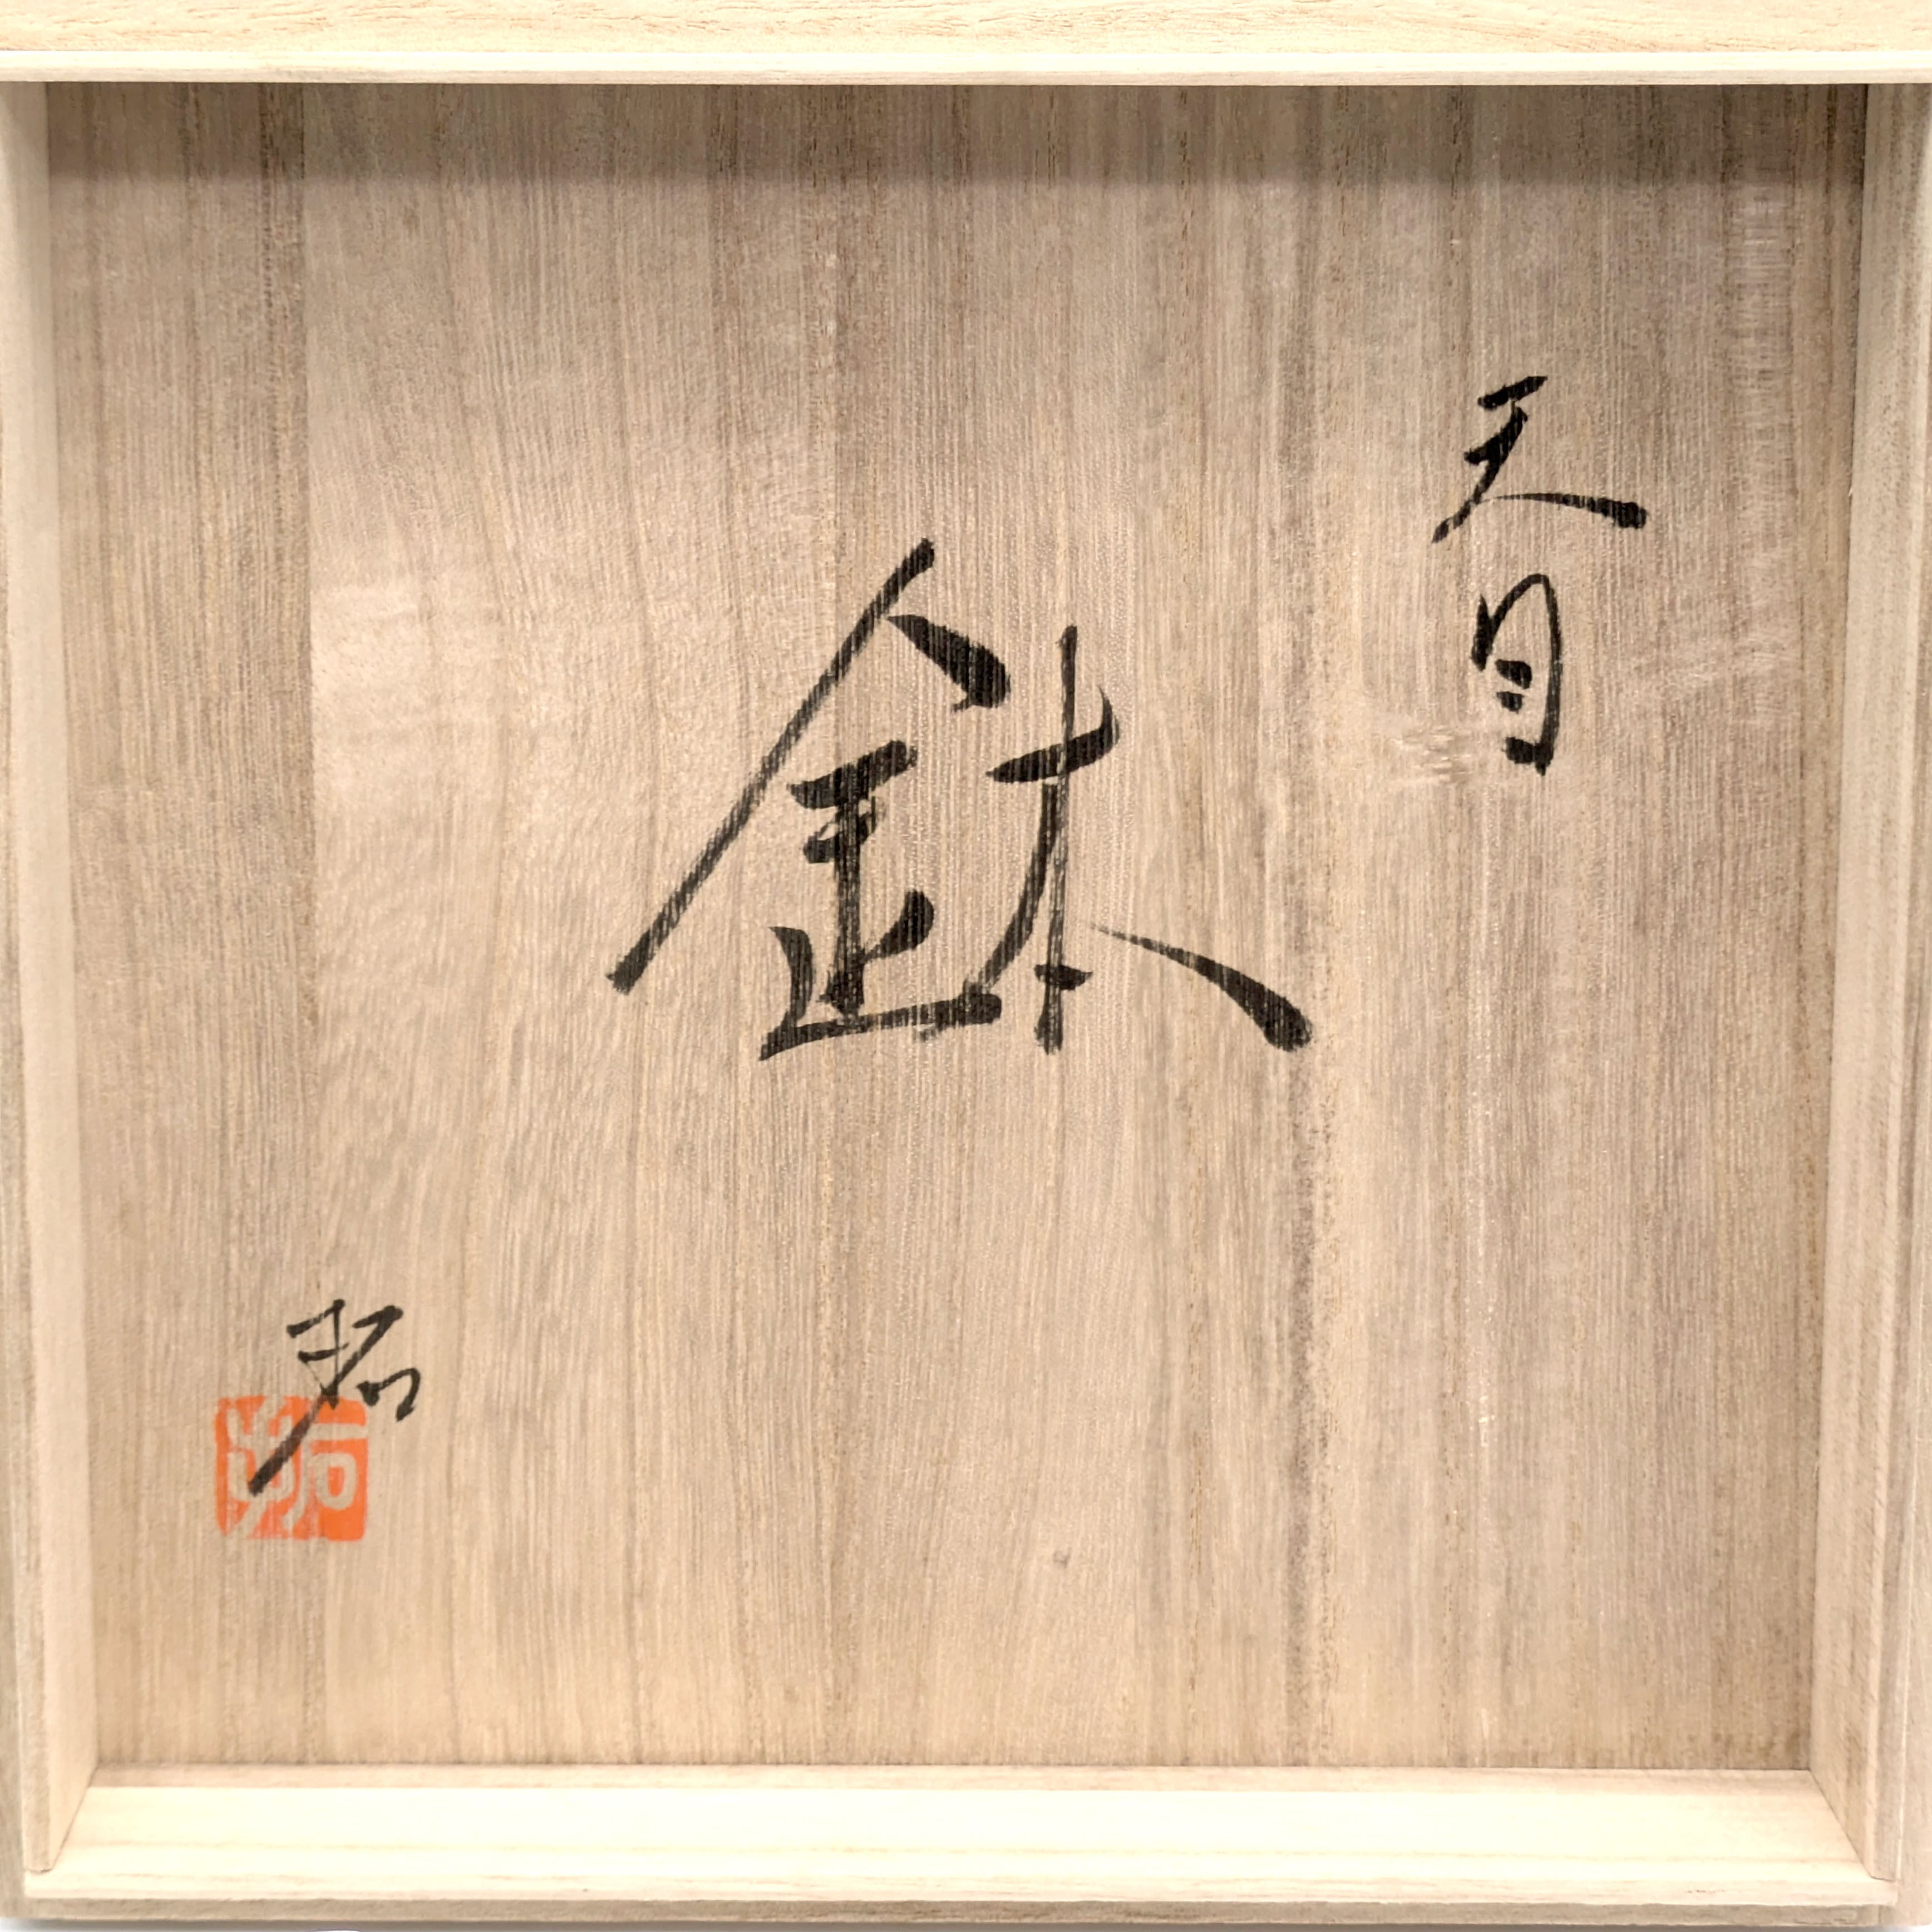 天目
鉢
拓
拓